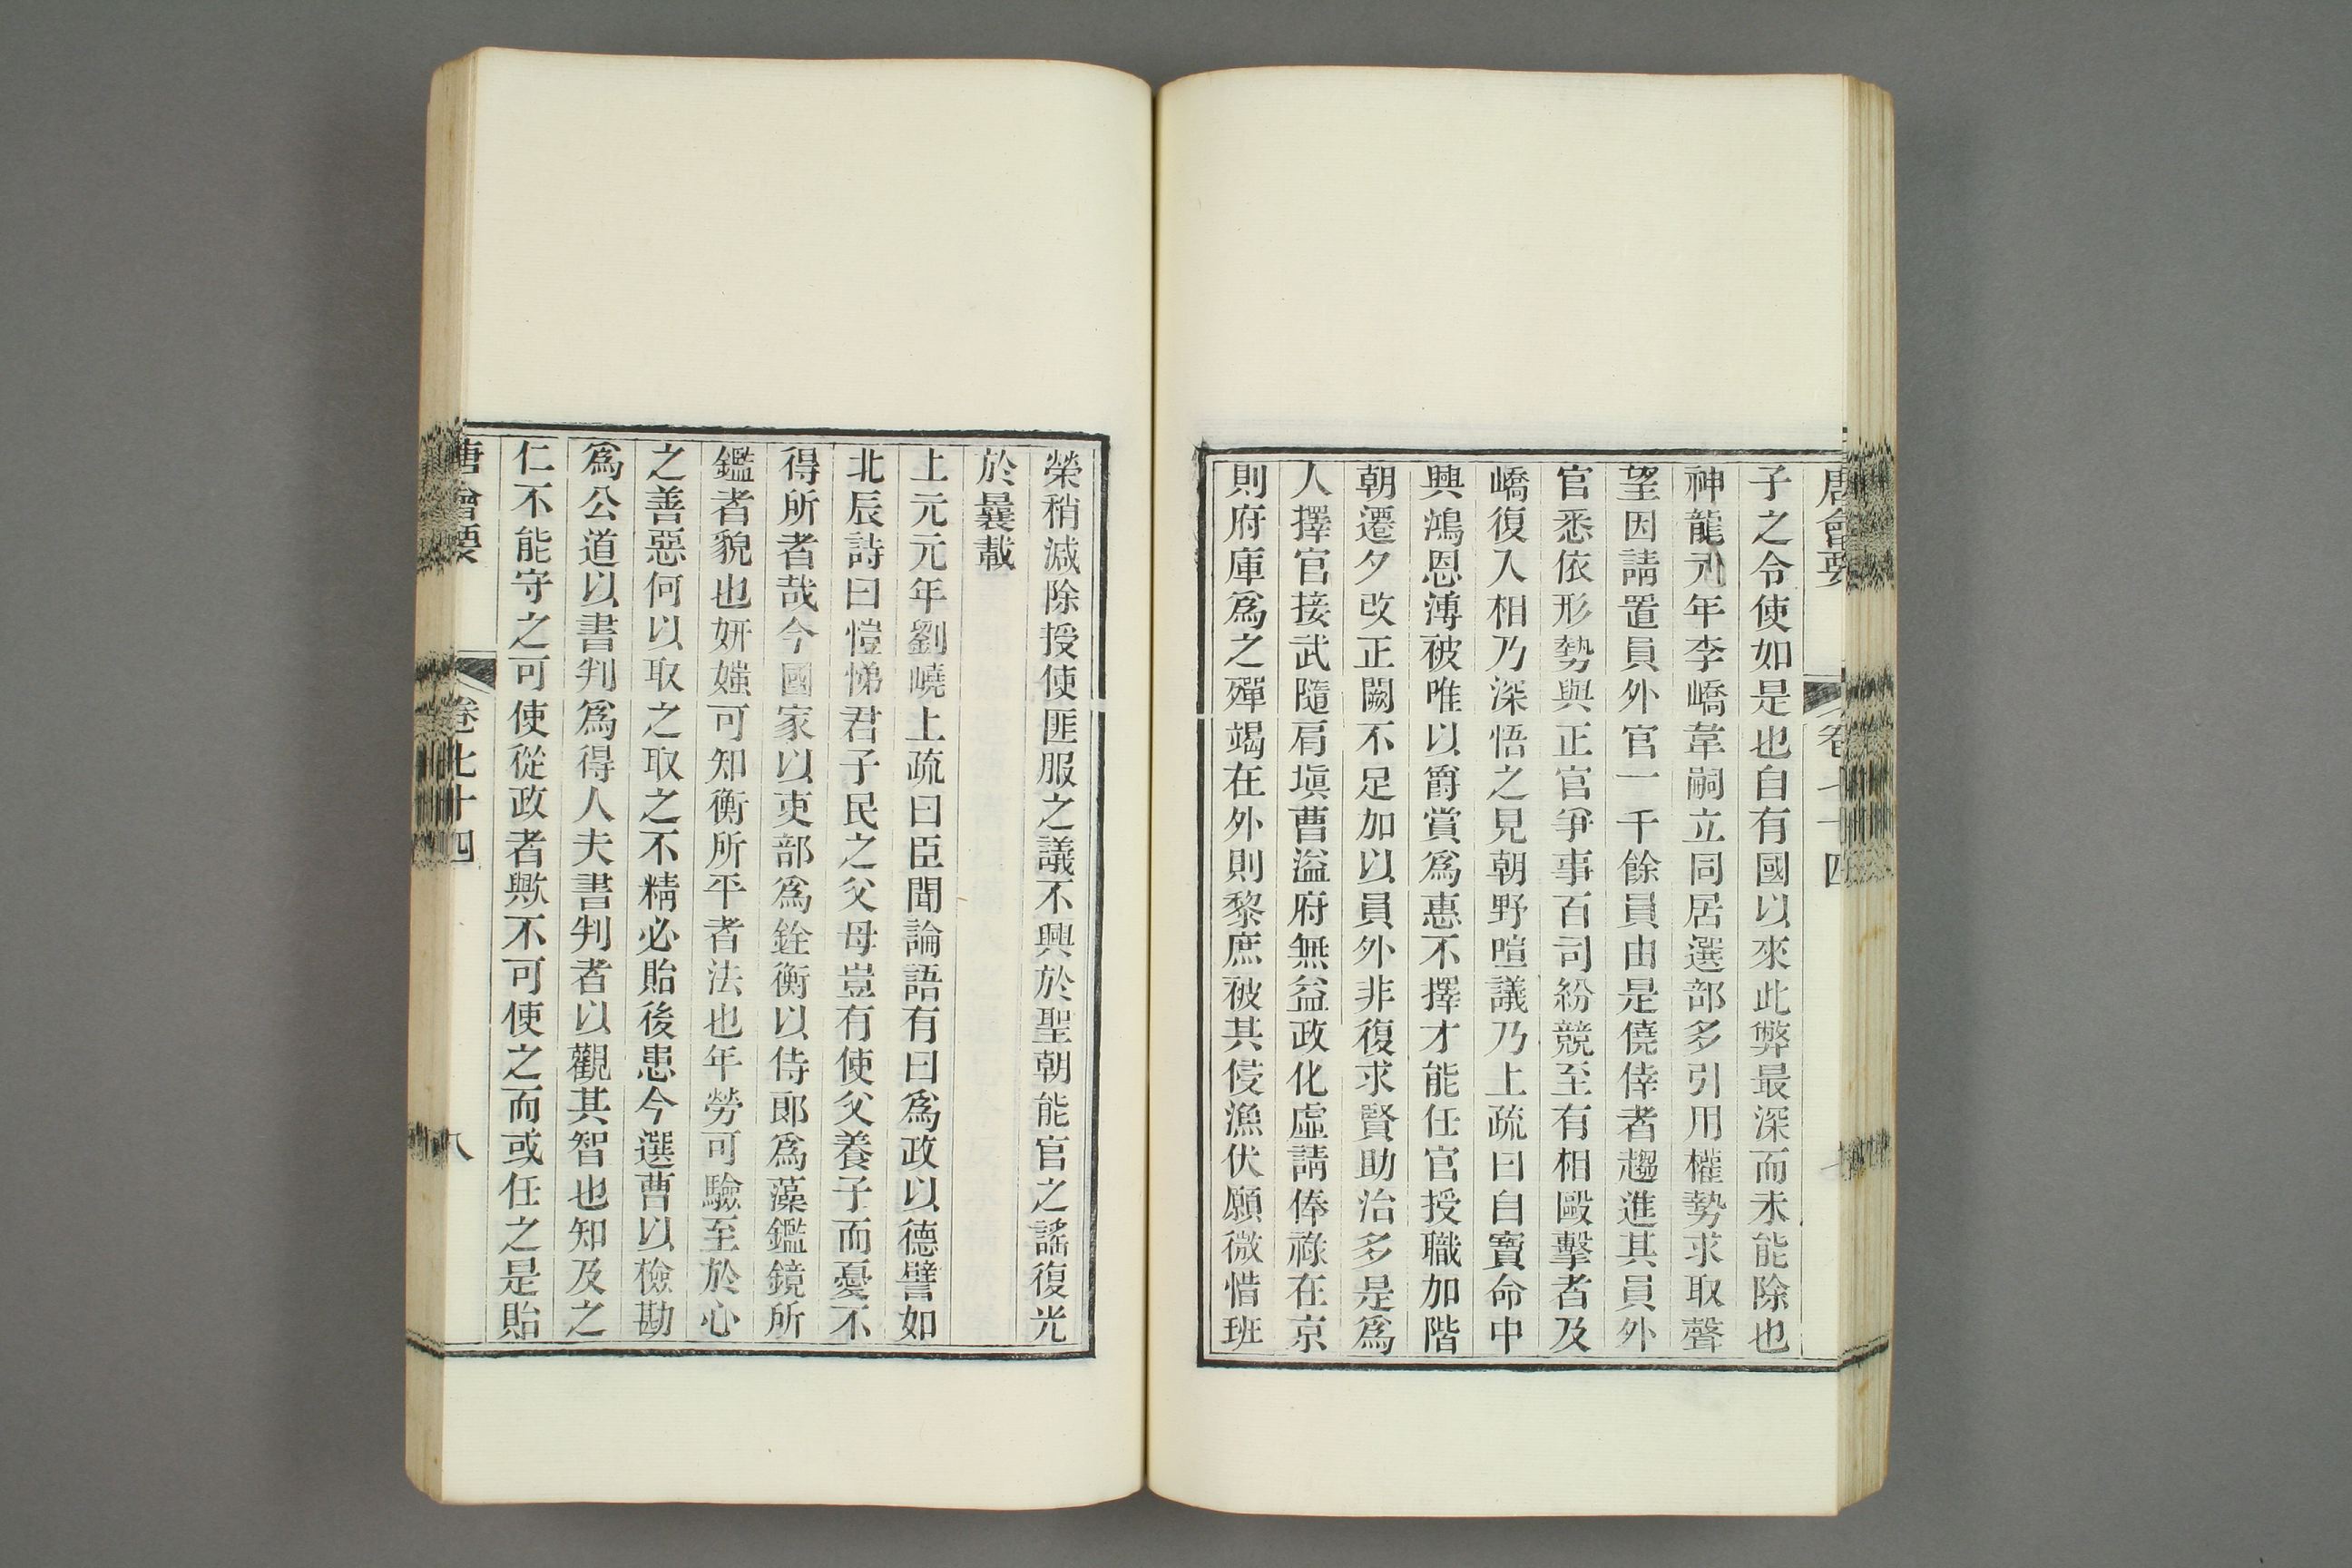 唐會要 卷七十四
子之令使如是也自有國以來此弊最深而未能除也
神龍元年李嶠韋嗣立同居選部多引用權勢求取聲
望因請置員外官一千餘員由是僥倖者趨進其員外
官悉依形勢與正官爭事百司紛競至有相毆擊者及
嶠復入相乃深悟之見朝野喧議乃上疏曰自寶命中
興鴻恩溥被唯以爵賞爲惠不擇才能任官授職加階
朝遷夕改正闕不足加以員外非復求賢助治多是爲
人擇官接武隨肩塡曹溢府無益政化虛請俸祿在京
則府庫爲之殫竭在外則黎庶被其侵漁伏願微惜班
榮稍減除授使匪服之議不興於聖朝能官之謠復光
於曩載
上元元年劉嶢上疏曰臣聞論語有曰爲政以德譬如
北辰詩曰愷悌君子民之父母豈有使父養子而憂不
得所者哉今國家以吏部爲銓衡以侍郎爲藻鑑鏡所
鑑者貌也妍媸可知衡所平者法也年勞可驗至於心
之善惡何以取之取之不精必貽後患今選曹以檢勘
爲公道以書判爲得人夫書判者以觀其智也知及之
仁不能守之可使從政者歟不可使之而或任之是貽
唐會要 卷七十四 八